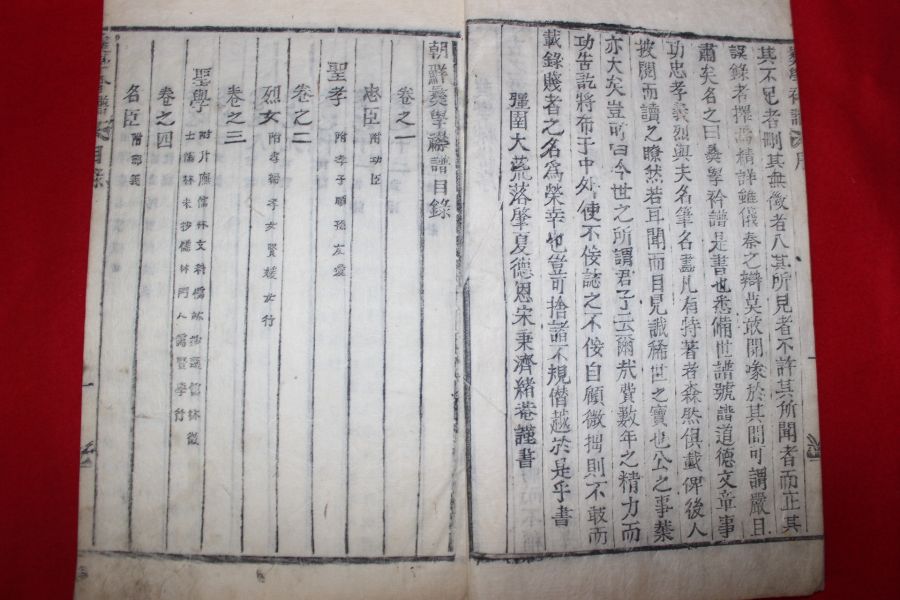 彛學衿譜 序
其不足者刪其無徵者八其所見者不許其所聞者而正其
誤錄者擇焉精詳雖儀秦之辯莫敢開喙於其間可謂嚴且
肅矣名之曰彛學衿譜是書也悉備世譜號譜道德文章事
功忠孝義烈與夫名筆名畵凡有特著者森然俱載俾後人
披閱而讀之瞭然若耳聞而目見誠稀世之寶也公之事業
亦大矣豈所曰今世之所謂君子云爾哉費數年之精力而
功告訖將布于中外使不佞誌之不佞自顧微拙則不敢而
載錄賤者之名爲榮幸也豈可捨諸不規僭越於是乎書
彊圉大荒落肇夏德恩宋秉濟緖菴謹書
朝鮮彛學衿譜目錄
卷之一
忠臣 附功臣
聖孝 附孝子順孫友愛
卷之二
烈女 附孝婦孝女賢媛女行
卷之三
聖學 附片廡儒林文科儒林抄選儒林徵
士儒林未抄儒林門人寓賢學行
卷之四
名臣 附鄕義
目錄 一